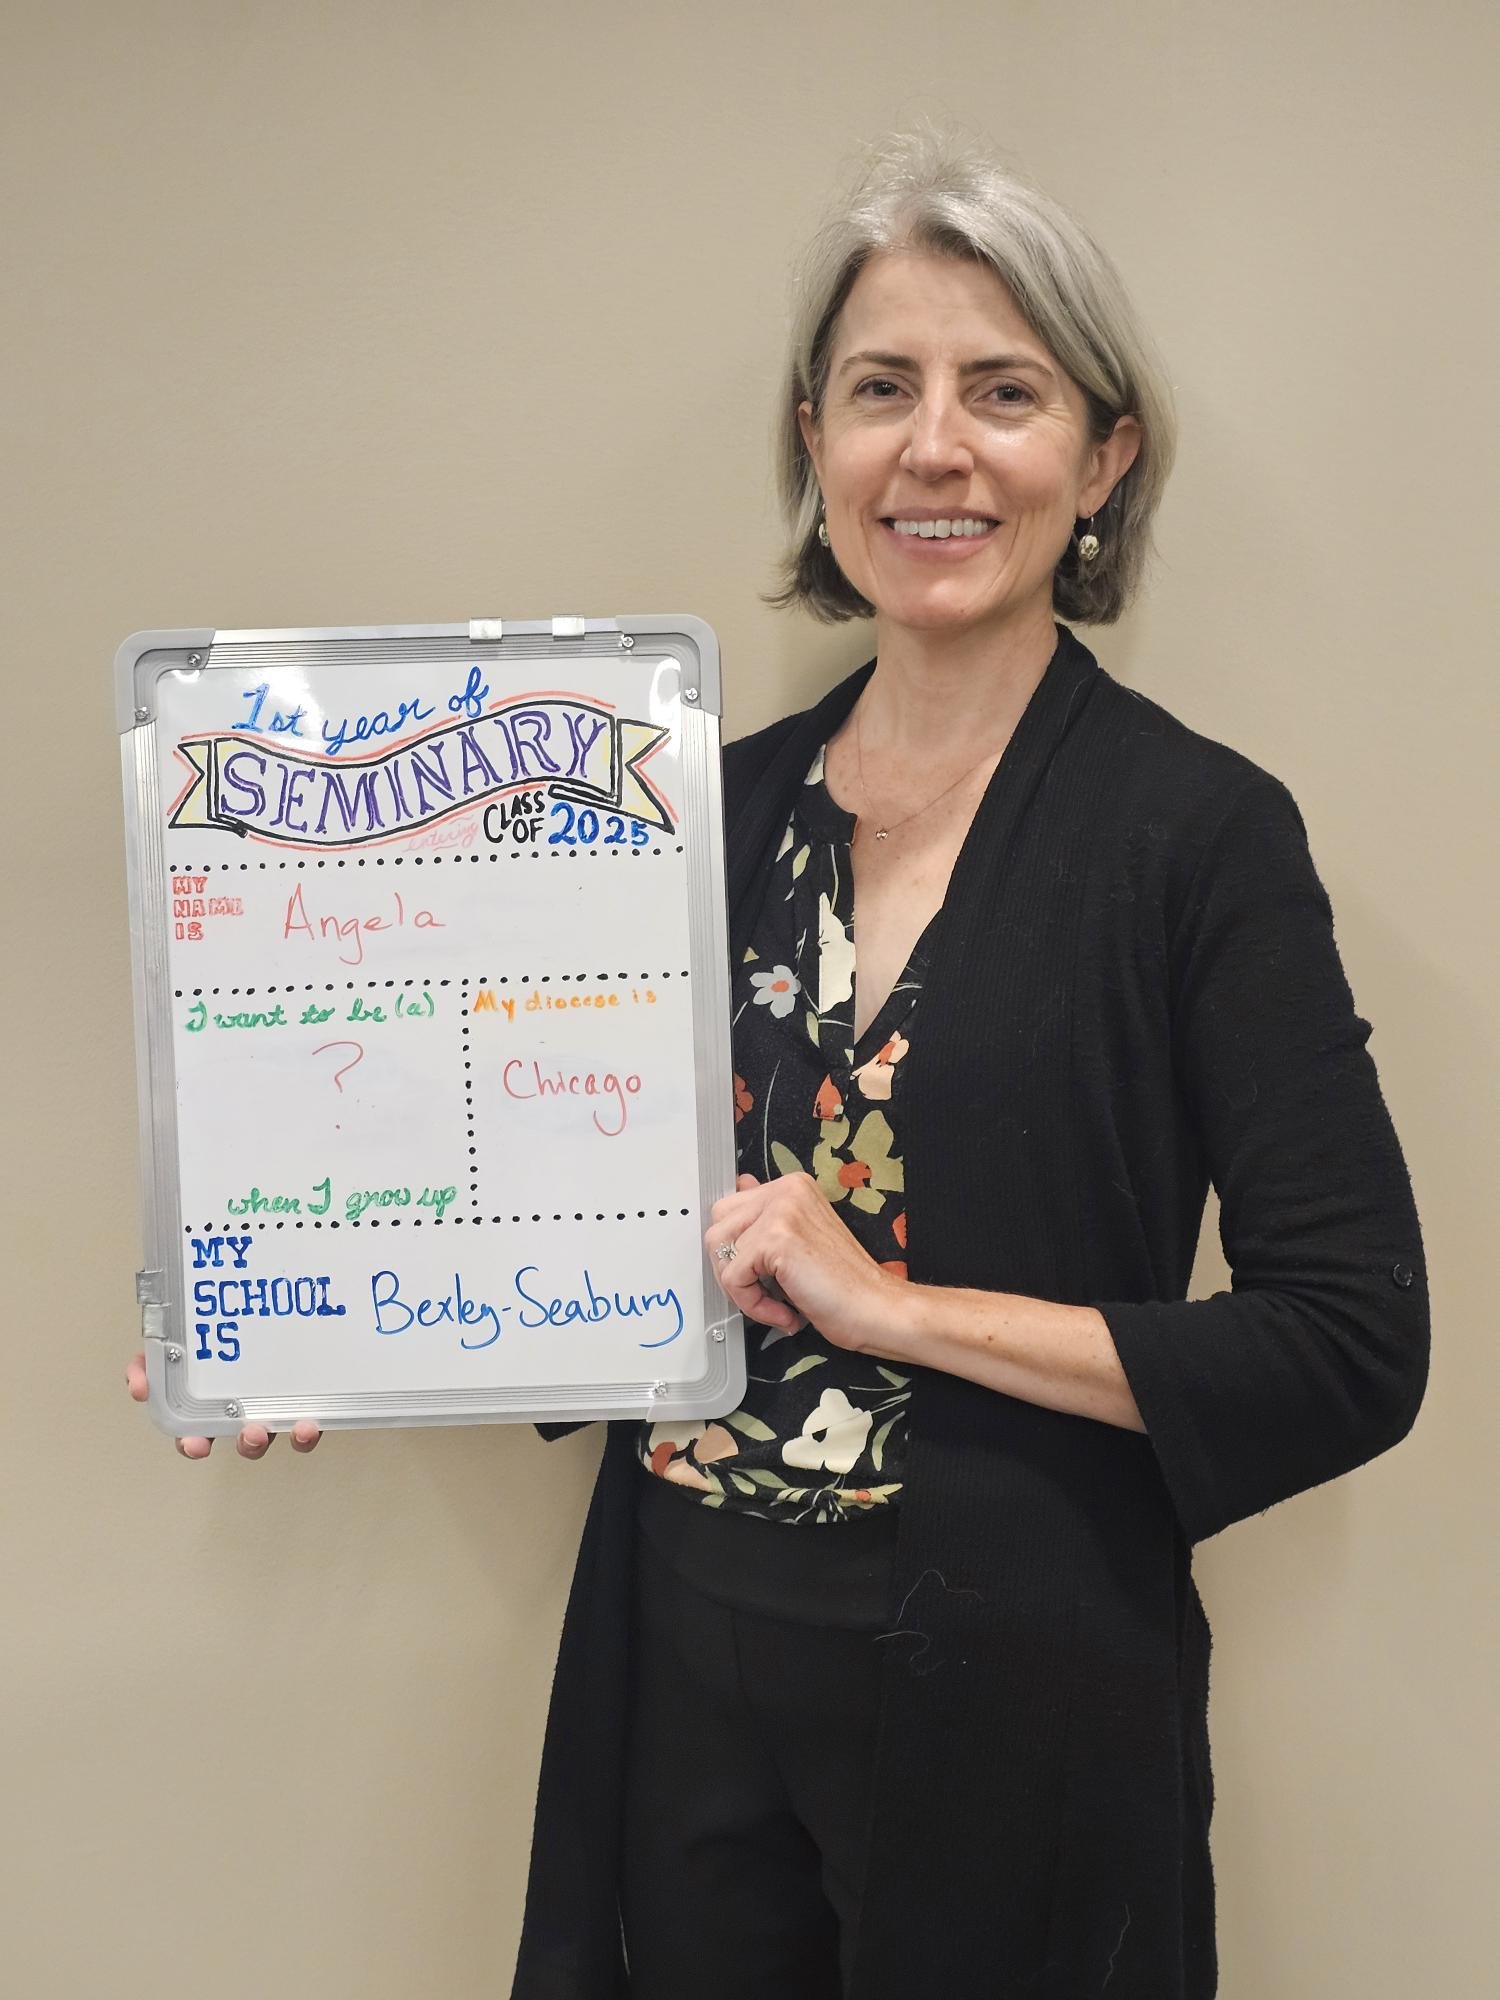 1st year of
SEMINARY
entering CLASS OF 2025
MY NAME IS
Angela
I want to be (a)
?
when I grow up
My diocese is
Chicago
MY SCHOOL IS
Bexley-Seabury